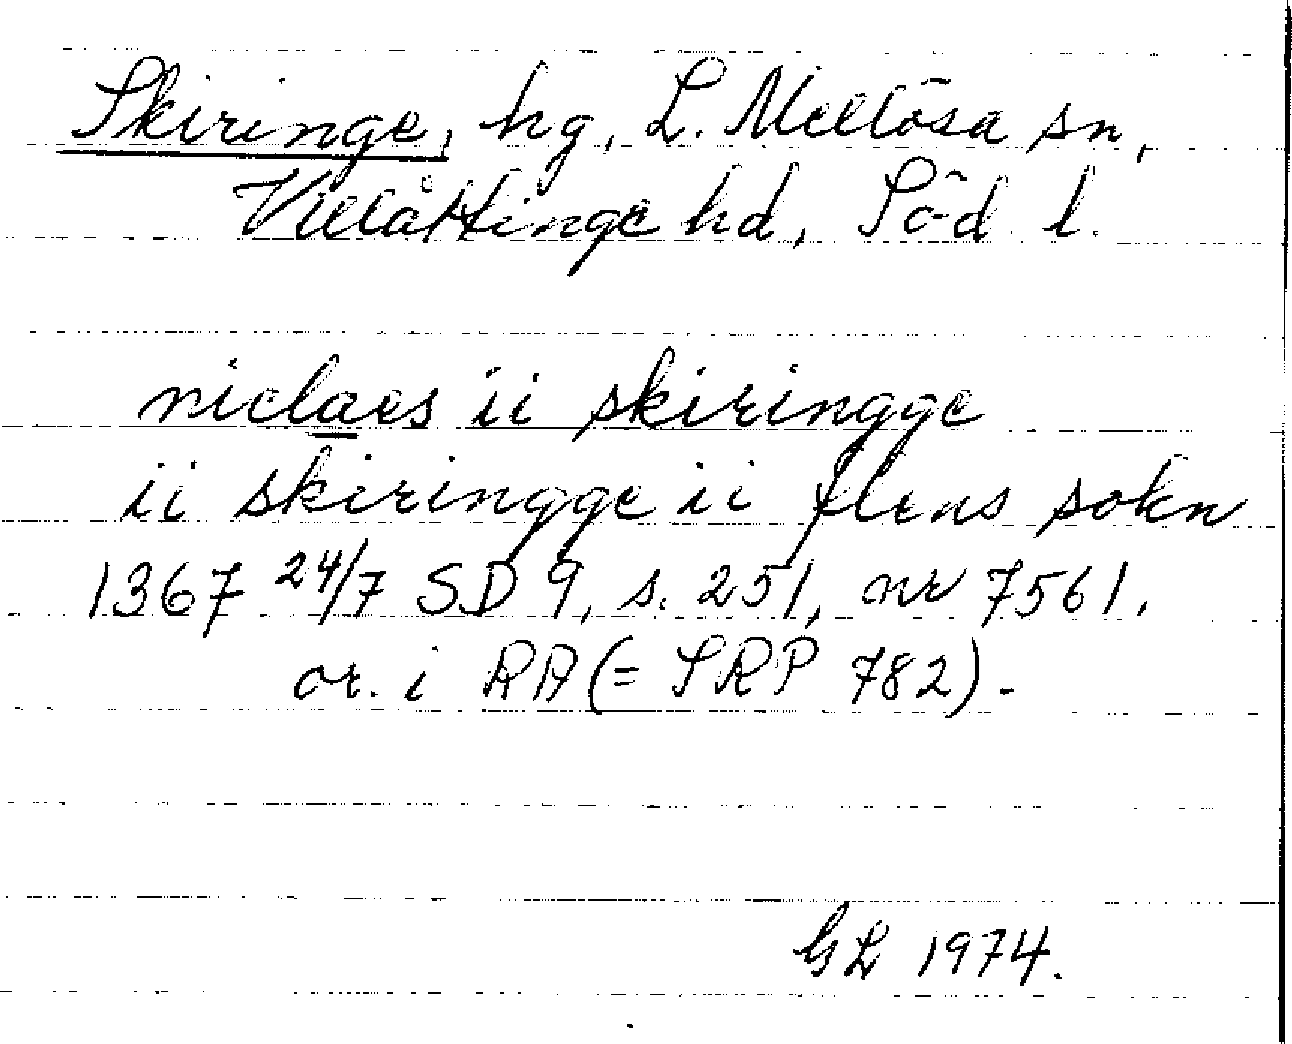 Skiringe, hg, L. Mellösa sn,
Villåttinge hd, Söd. l.
niclaes ii skiringge
ii skiringge ii flens sokn
1367 24/7 SD 9, s. 251, nr 7561.
or. i RA (= SRP 782).
GL 1974.